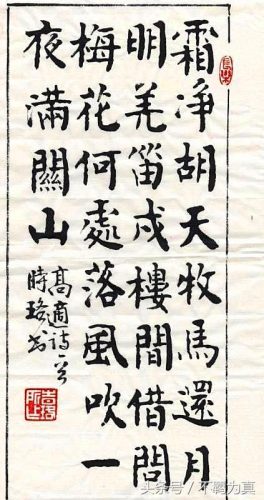 霜净胡天牧馬還月
明羌笛戍樓間借問
梅花何處落風吹一
夜滿關山
高適詩一首
時珞书
头条号 / 不羁为真